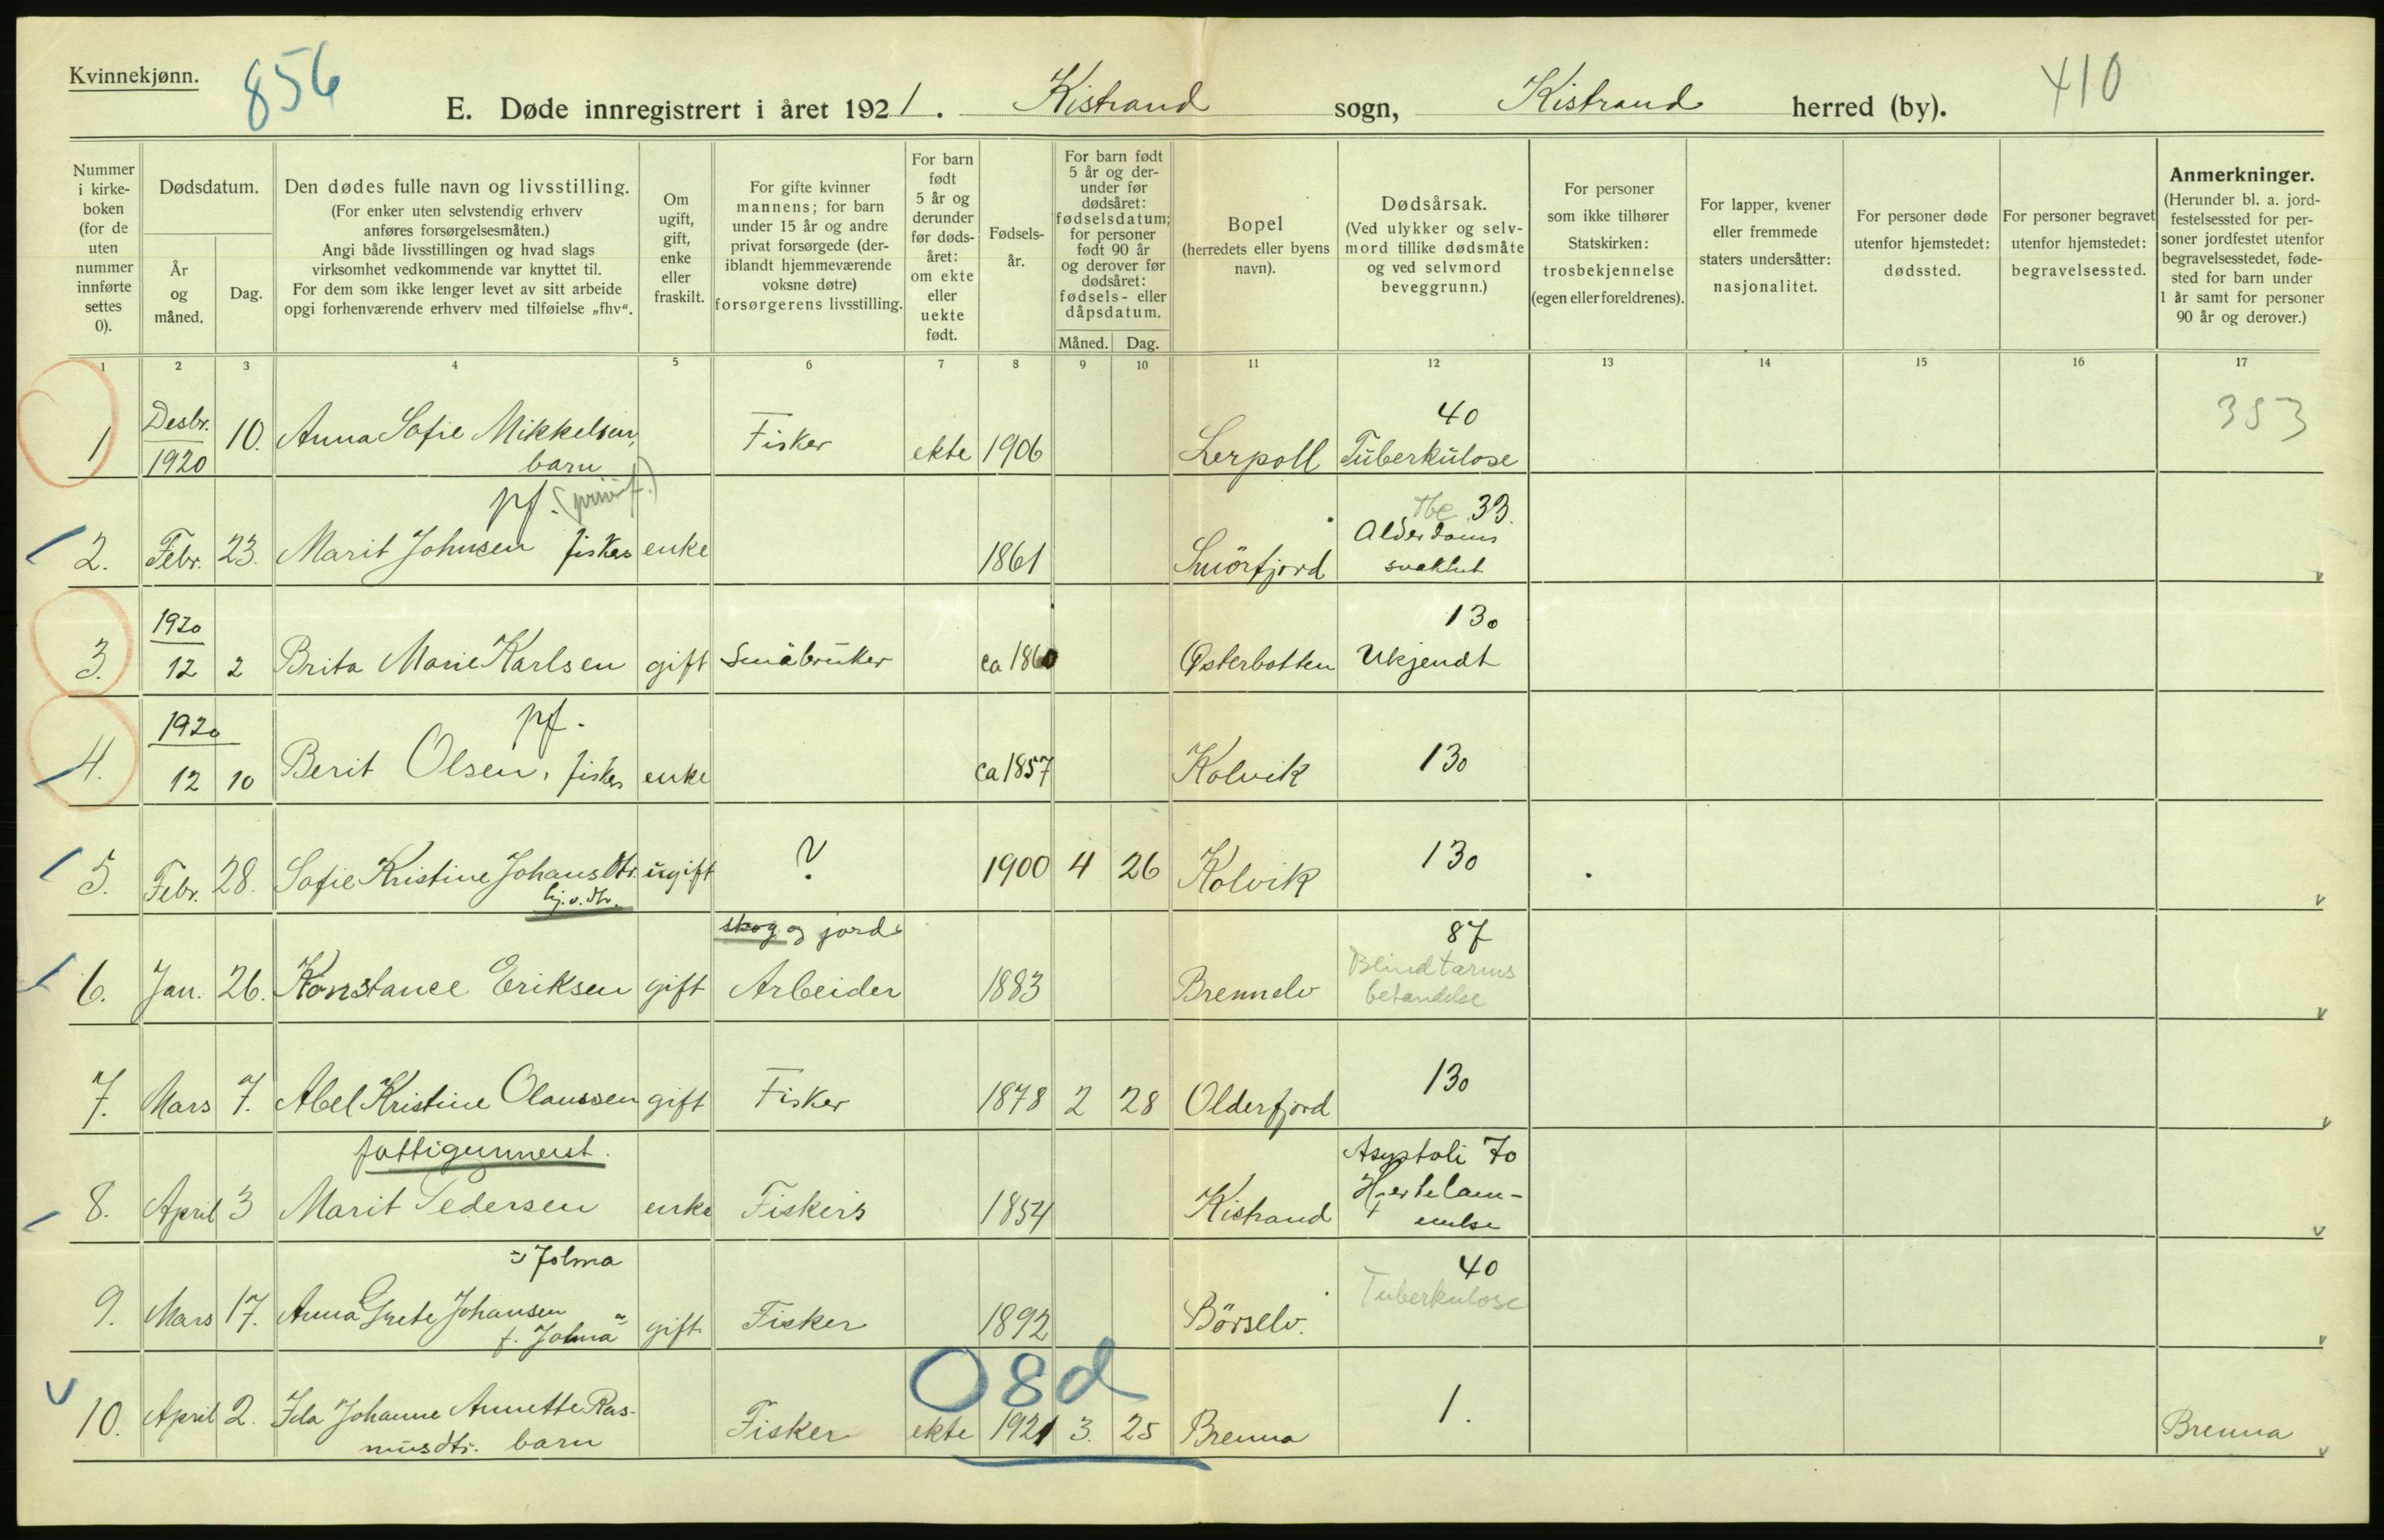 Kvinnekjønn.
856
410
E. Døde innregistrert i året 1921. Kistrand sogn, Kistrand herred (by).
Nummer i kirke-boken (for de uten nummer innførte settes 0).
Dødsdatum.
År og måned.
Dag.
Den dødes fulle navn og livsstilling.
(For enker uten selvstendig erhverv anføres forsørgelsesmåten.)
Angi både livsstillingen og hvad slags virksomhet vedkommende var knyttet til.
For dem som ikke lenger levet av sitt arbeide opgi forhenværende erhverv med tilføielse „fhv“.
Om ugift, gift, enke eller fraskilt.
For gifte kvinner mannens; for barn under 15 år og andre privat forsørgede (deriblandt hjemmeværende voksne døtre) forsørgerens livsstilling.
For barn født 5 år og derunder før dødsåret: om ekte eller uekte født.
Fødsels-år.
For barn født 5 år og derunder før dødsåret: fødselsdatum; for personer født 90 år og derover før dødsåret: fødsels- eller dåpsdatum.
Måned. Dag.
Bopel (herredets eller byens navn).
Dødsårsak. (Ved ulykker og selvmord tillike dødsmåte og ved selvmord beveggrunn.)
For personer som ikke tilhører Statskirken: trosbekjennelse (egen eller foreldrenes).
For lapper, kvener eller fremmede staters undersåtter: nasjonalitet.
For personer døde utenfor hjemstedet: dødssted.
For personer begravet utenfor hjemstedet: begravelsessted.
Anmerkninger. (Herunder bl. a. jordfestelsessted for personer jordfestet utenfor begravelsesstedet, fødested for barn under 1 år samt for personer 90 år og derover.)
1 2 3 4 5 6 7 8 9 10 11 12 13 14 15 16 17
1 Desbr. 1920 10. Anna Sofie Mikkelsen, barn Fisker ekte 1906 Lerpoll 40 Tuberkulose 353
pf.
2. Febr. 23. Marit Johnsen fisker enke 1861 Smörfjord Tbc 33. Alderdoms svakhet
3. 1920 12 2 Brita Marie Karlsen gift Småbruker ca 1860 Østerbotten 130 Ukjendt
pf.
4. 1920 12 10 Berit Olsen, fisker enke ca 1857 Kolvik 130
5. Febr. 28. Sofie Kristine Johansdtr. ugift ? 1900 4 26 Kolvik 130
hj.v.dtr.
skog og jord
6. Jan. 26. Konstance Eriksen gift Arbeider 1883 Brennelv 87 Blindtarms betændelse
7. Mars 7. Abel Kristine Olaussen gift Fisker 1878 2 28 Olderfjord 130
fattigunnerst.
8. April 3 Marit Pedersen enke Fiskers 1854 Kistrand Asystoli 70 Hjertelammelse
= Jolma
9. Mars 17. Anna Grete Johansen f. Jolma gift Fisker 1892 Börselv. 40 Tuberkulose
08d
10. April 2. Ida Johanne Annette Rasmusdtr. barn Fisker ekte 1921 3. 25 Brenna 1. Brenna